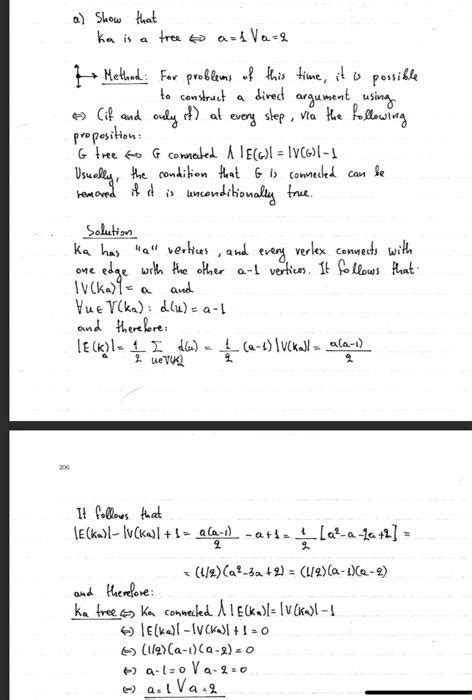 a) Show that
Ka is a tree ⇔ a=1 V a=2
Method: For problems of this time, it is possible
to construct a direct argument using
⇔ (if and only if) at every step, via the following
proposition:
G tree ⇔ G connected Λ |E(G)| = |V(G)|-1
Usually, the condition that G is connected can be
removed if it is unconditionally true.
Solution
Ka has "a" vertices, and every vertex connects with
one edge with the other a-1 vertices. It follows that
|V(Ka)| = a and
∀u∈V(Ka): d(u) = a-1
and therefore:
|E(Ka)| = 1/2 Σ_{u∈V(Ka)} d(u) = 1/2 (a-1)|V(Ka)| = a(a-1)/2
206
It follows that
|E(Ka)|-|V(Ka)|+1 = a(a-1)/2 -a+1 = 1/2 [a²-a-2a+2] =
= (1/2)(a²-3a+2) = (1/2)(a-1)(a-2)
and therefore:
Ka tree ⇔ Ka connected Λ |E(Ka)| = |V(Ka)|-1
⇔ |E(Ka)|-|V(Ka)|+1=0
⇔ (1/2)(a-1)(a-2)=0
⇔ a-1=0 V a-2=0
⇔ a=1 V a=2